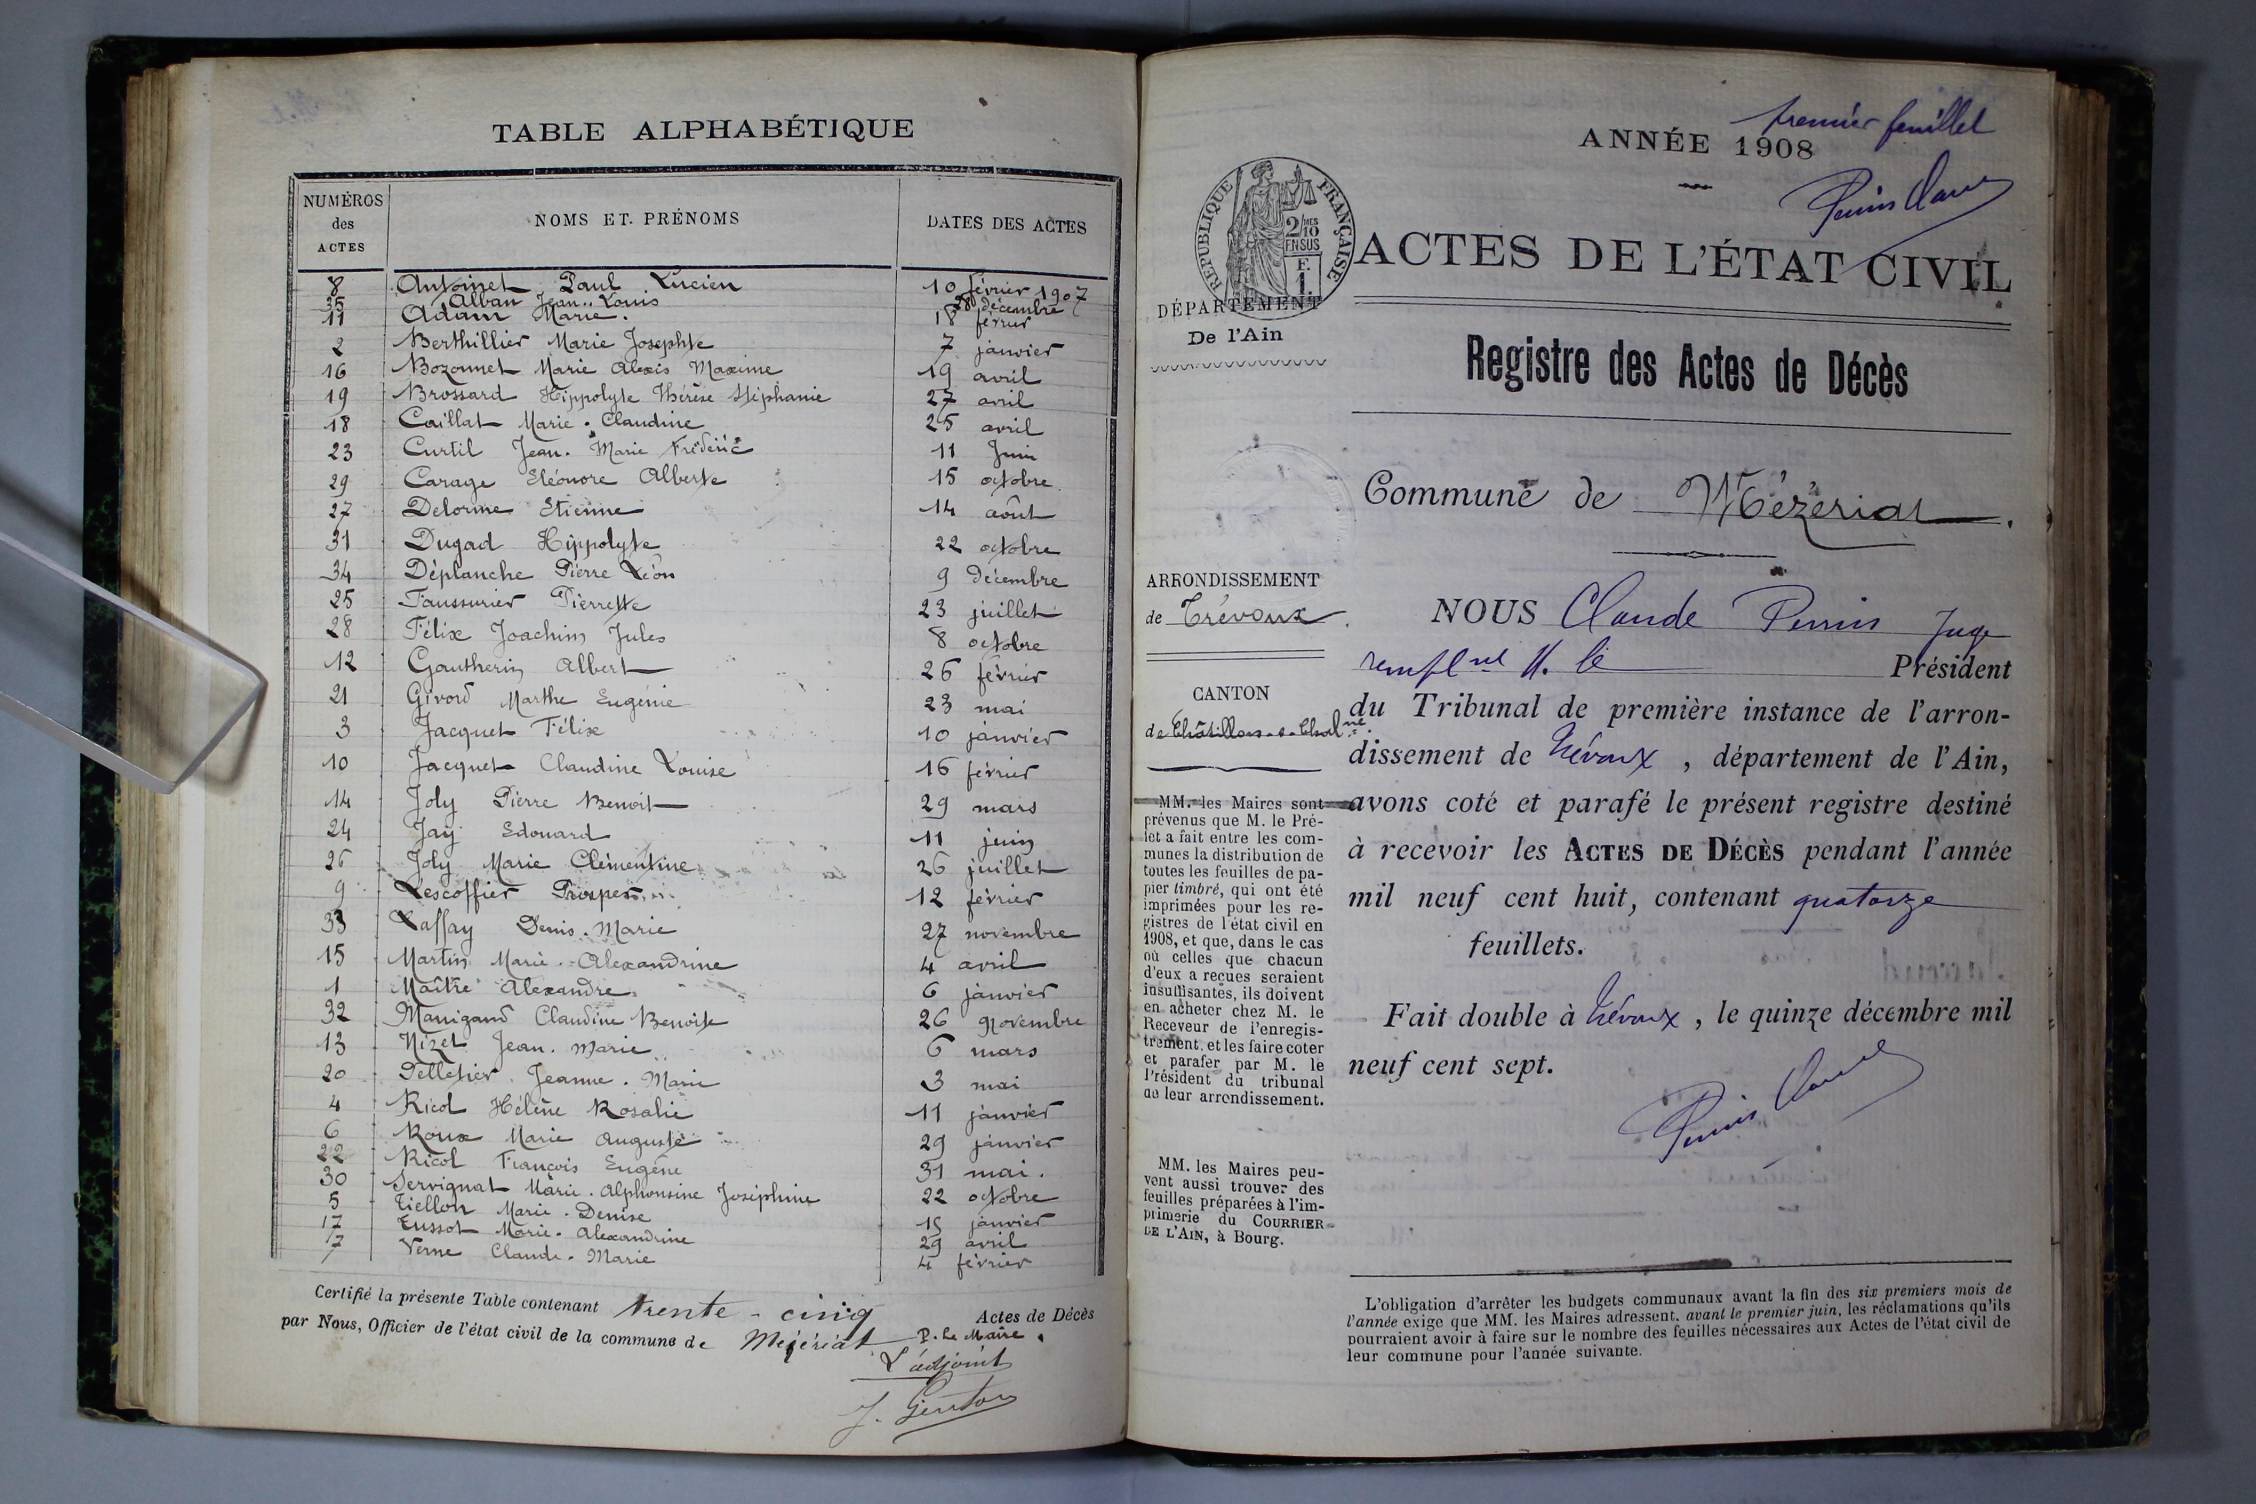 TABLE ALPHABÉTIQUE
NUMÉROS des ACTES NOMS ET PRÉNOMS DATES DES ACTES
8 Antoinet Paul Lucien 10 février 1907
35 Alban Jean-Louis 28 décembre
11 Adam Marie. 18 février
2 Berthillier Marie Josephte 7 janvier
16 Bozonnet Marie Alexis Maxime 19 avril
19 Brossard Hippolyte Thérèse Stéphanie 27 avril
18 Caillat Marie-Claudine 25 avril
23 Curtil Jean-Marie Frédéric 11 Juin
29 Carage Eléonore Alberte 15 octobre
27 Delorme Etienne 14 août
31 Dugad Hippolyte 22 octobre
34 Déplanche Pierre Léon 9 décembre
25 Faussurier Pierrette 23 juillet
28 Félix Joachim Jules 8 octobre
12 Gautherin Albert 26 février
21 Givord Marthe Eugénie 23 mai
3 Jacquet Félix 10 janvier
10 Jacquet Claudine Louise 16 février
14 Joly Pierre Benoit 29 mars
24 Jay Edouard 11 juin
26 Joly Marie Clémentine 26 juillet
9 Lescoffier Prosper 12 février
33 Laffay Denis-Marie 27 novembre
15 Martin Marie-Alexandrine 4 avril
1 Maître Alexandre 6 janvier
32 Manigand Claudine Benoite 26 novembre
13 Nizet Jean-Marie 6 mars
20 Pelletier Jeanne-Marie 3 mai
4 Ricol Hélène Rosalie 11 janvier
6 Roux Marie Auguste 29 janvier
22 Ricol François Eugène 31 mai.
30 Servignat Marie-Alphonsine Joséphine 22 octobre
5 Tiellon Marie-Denise 15 janvier
17 Tussot Marie-Alexandrine 29 avril
7 Verne Claude-Marie 4 février
Certifié la présente Table contenant trente-cinq Actes de Décès
par Nous, Officier de l'état civil de la commune de Mézériat P. le Maire
L'adjoint
J. Genton
premier feuillet
ANNÉE 1908
Perrin Claude
RÉPUBLIQUE FRANÇAISE
2/10 MES
EN SUS
F.
1.
ACTES DE L'ÉTAT CIVIL
DÉPARTEMENT
De l'Ain
Registre des Actes de Décès
Commune de Mézériat.
ARRONDISSEMENT
de Trévoux.
CANTON
de Châtillon-s-Chalne
MM. les Maires sont
prévenus que M. le Pré-
fet a fait entre les com-
munes la distribution de
toutes les feuilles de pa-
pier timbré, qui ont été
imprimées pour les re-
gistres de l'état civil en
1908, et que, dans le cas
où celles que chacun
d'eux a reçues seraient
insuffisantes, ils doivent
en acheter chez M. le
Receveur de l'enregis-
trement, et les faire coter
et parafer par M. le
Président du tribunal
de leur arrondissement.
MM. les Maires peu-
vent aussi trouver des
feuilles préparées à l'im-
primerie du COURRIER
DE L'AIN, à Bourg.
NOUS Claude Perrin Juge
remplnt M. le Président
du Tribunal de première instance de l'arron-
dissement de Trévoux, département de l'Ain,
avons coté et parafé le présent registre destiné
à recevoir les ACTES DE DÉCÈS pendant l'année
mil neuf cent huit, contenant quatorze
feuillets.
Fait double à Trévoux, le quinze décembre mil
neuf cent sept.
Perrin Claude
L'obligation d'arrêter les budgets communaux avant la fin des six premiers mois de
l'année exige que MM. les Maires adressent, avant le premier juin, les réclamations qu'ils
pourraient avoir à faire sur le nombre des feuilles nécessaires aux Actes de l'état civil de
leur commune pour l'année suivante.